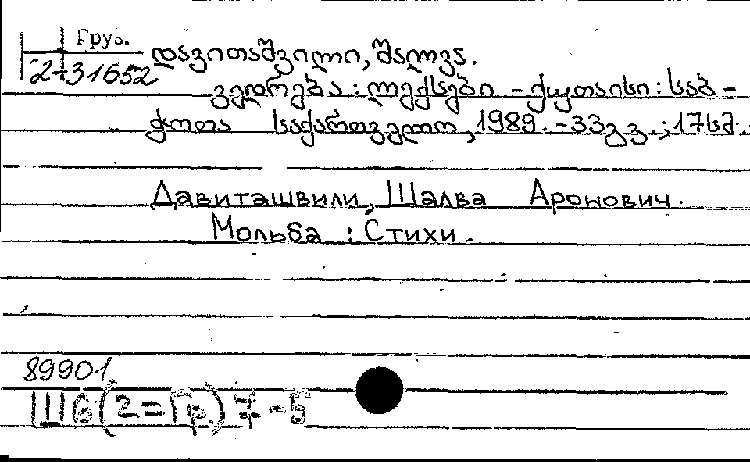 Груз.
2-31652
დავითაშვილი, შალვა.
ვედრება : ლექსები. - ქუთაისი : საბ-
ჭოთა საქართველო, 1989. - 33 გვ. ; 17 სმ.
Давиташвили, Шалва Аронович.
Мольба : Стихи.
89901
Ш6(2=Гр)7-5